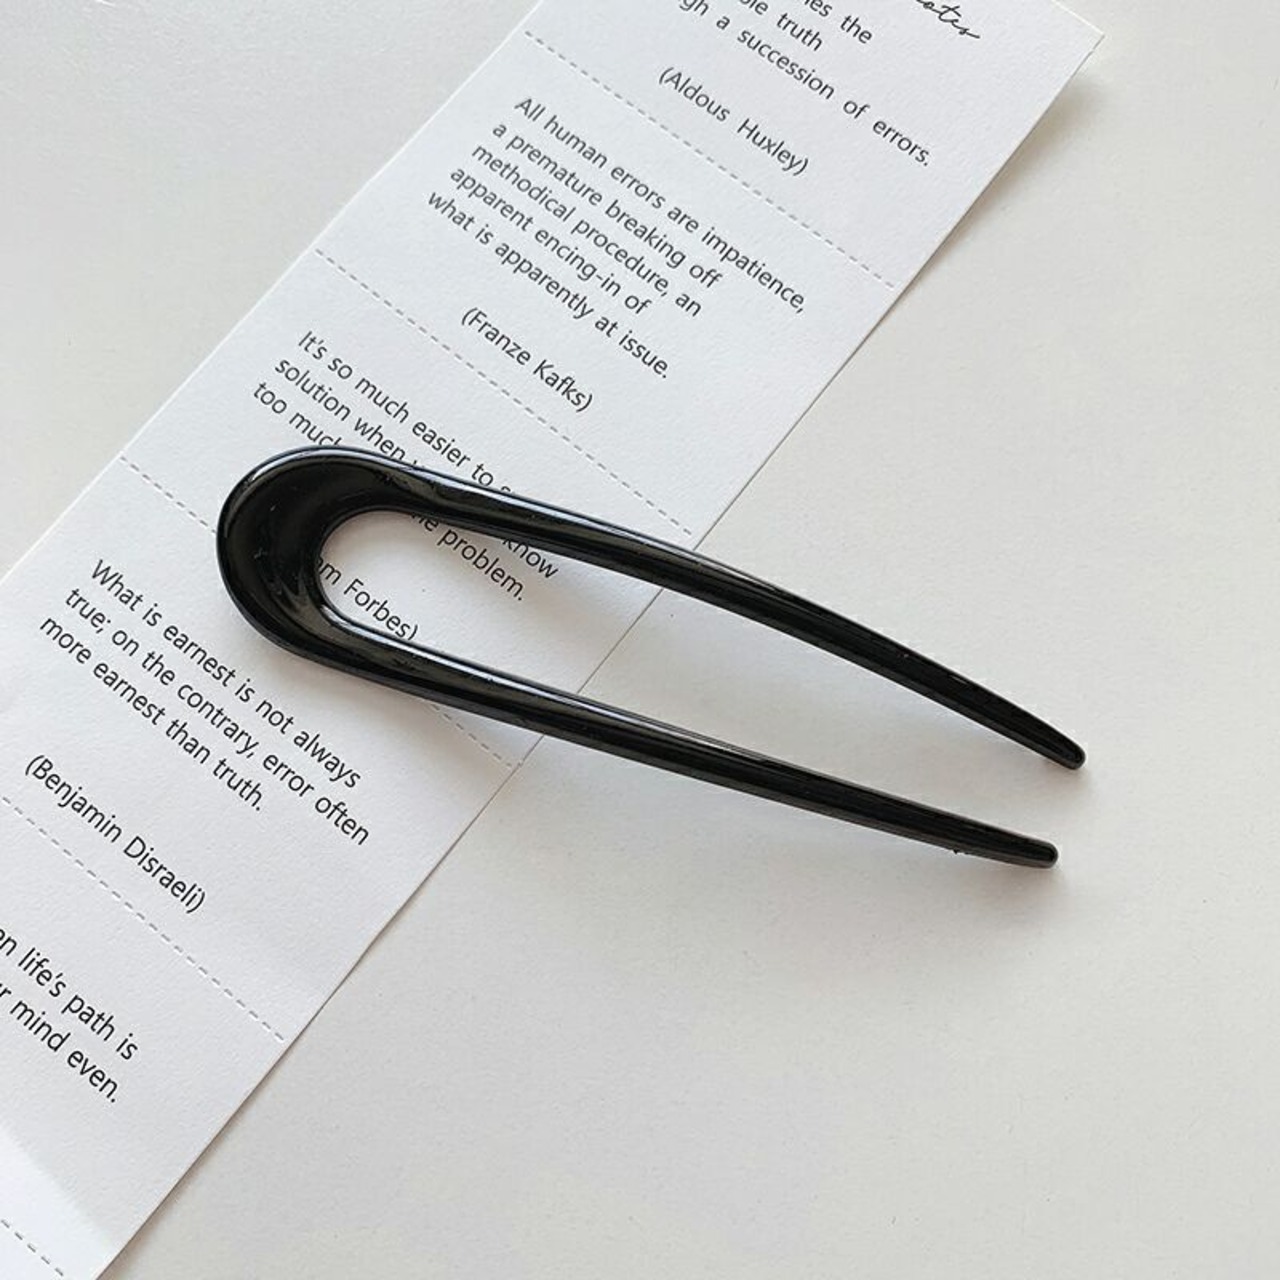 the
truth
a succession of errors.
(Aldous Huxley)
All human errors are impatience,
a premature breaking off
methodical procedure, an
apparent encing-in of
what is apparently at issue.
(Franze Kafks)
It's so much easier to
solution when
too much know
problem.
Forbes)
What is earnest is not always
true; on the contrary, error often
more earnest than truth.
(Benjamin Disraeli)
life's path is
mind even.